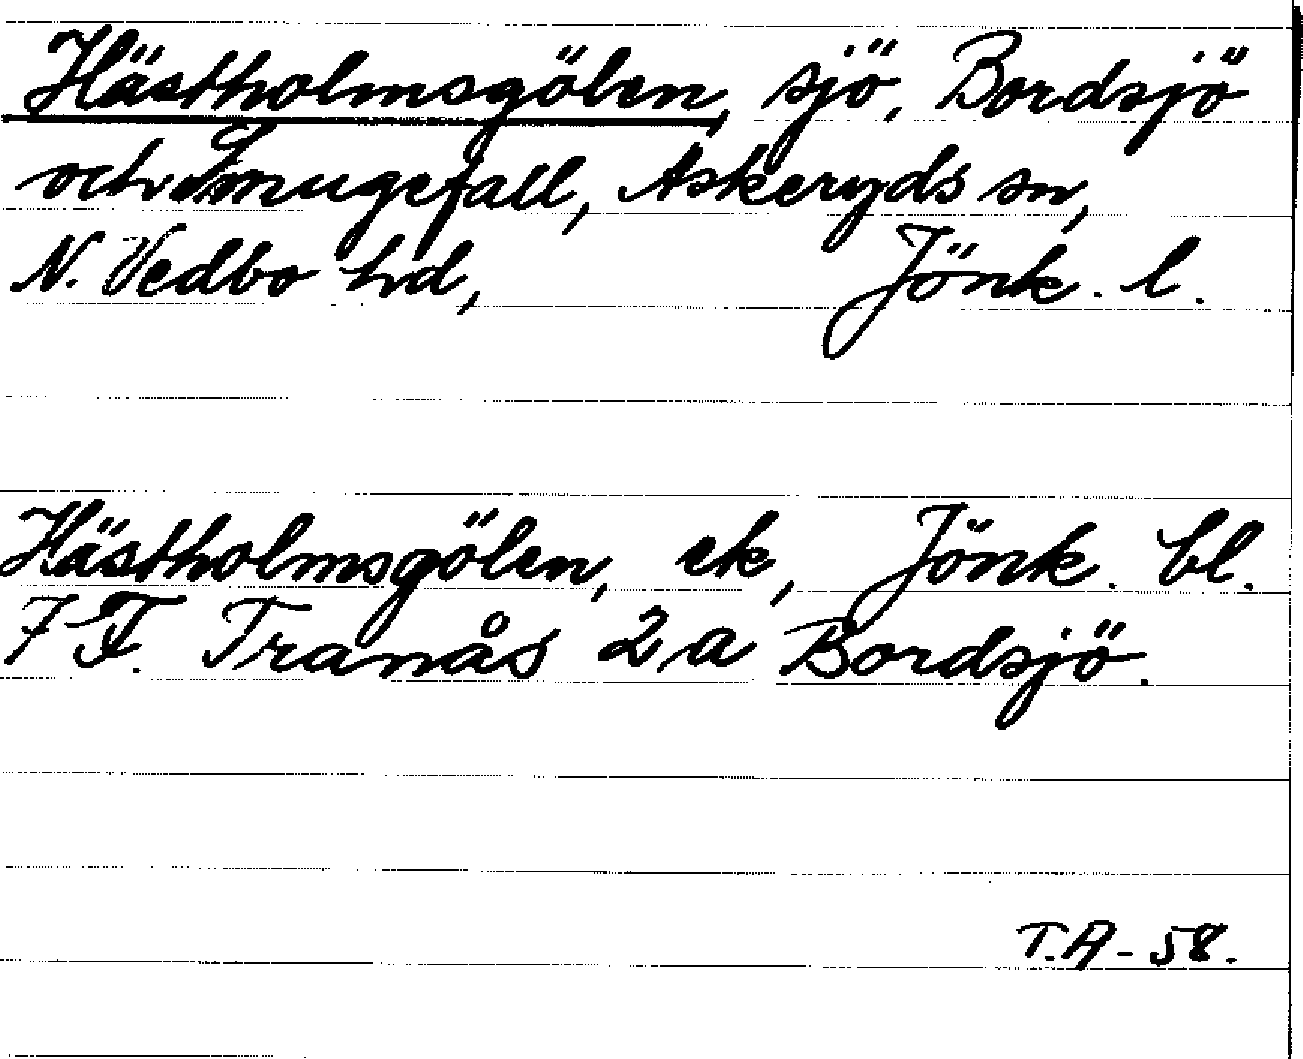 Hästholmsgölen, sjö, Bordsjö
och Smugefall, Askeryds sn,
N. Vedbo hd, Jönk. l.
Hästholmsgölen, ek, Jönk. bl.
7 F. Tranås 2, a Bordsjö.
T.A - 58.